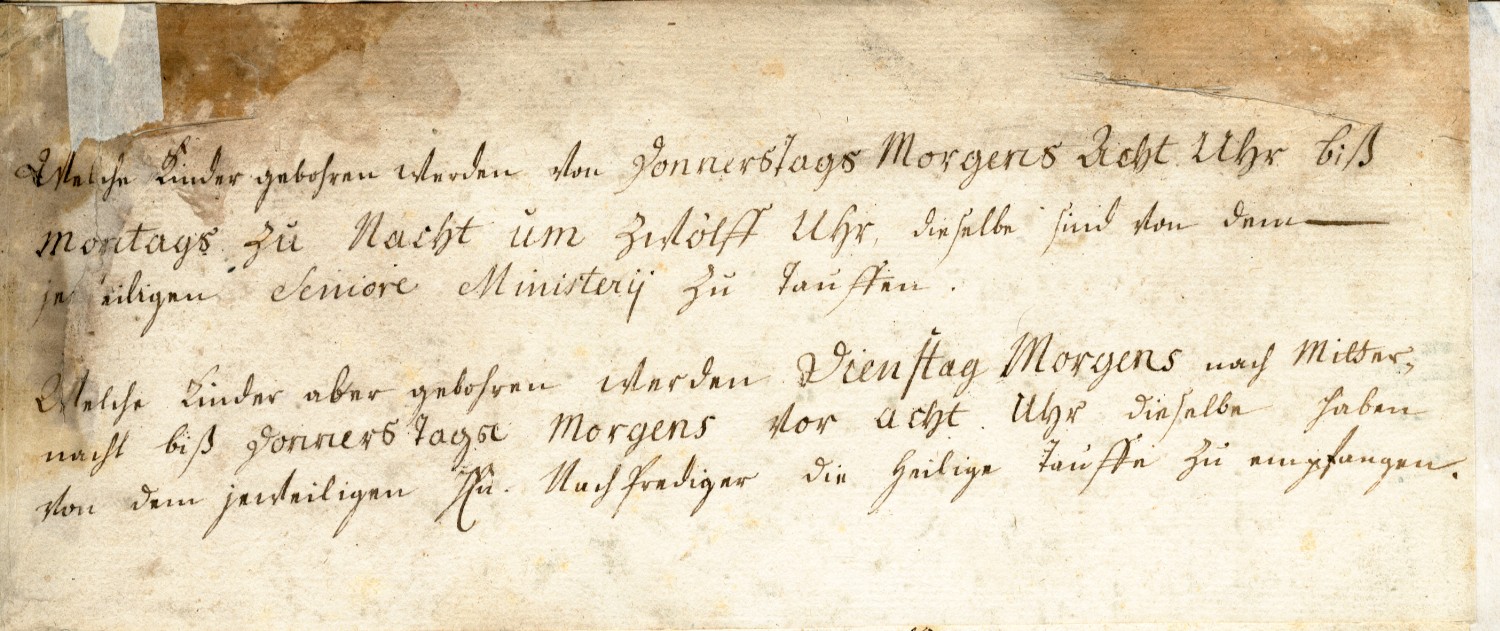 Welche Kinder gebohren werden von Donnerstags Morgens Acht Uhr biß
Montags zu Nacht um zwölff Uhr, dieselbe sind von dem
jeweiligen Seniore Ministerij zu Tauffen.
Welche Kinder aber gebohren werden Dienstag Morgens nach Mitter-
nacht biß Donnerstags Morgens vor acht Uhr dieselbe haben
von dem jeweiligen Hn. Nachprediger die Heilige Tauffe zu empfangen.